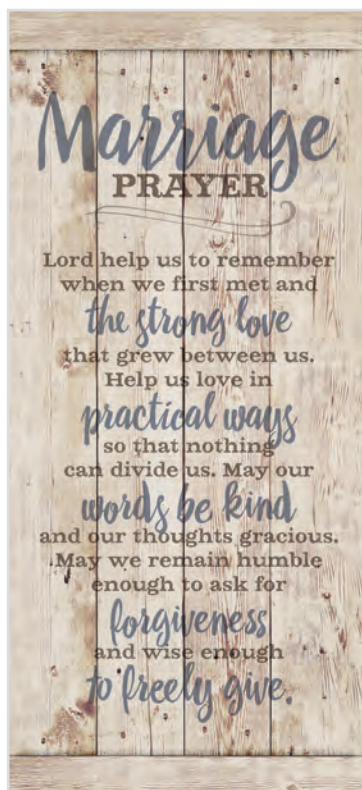 Marriage
PRAYER
Lord help us to remember
when we first met and
the strong love
that grew between us.
Help us love in
practical ways
so that nothing
can divide us. May our
words be kind
and our thoughts gracious.
May we remain humble
enough to ask for
forgiveness
and wise enough
to freely give.